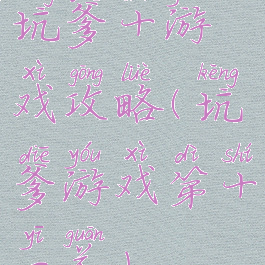 坑爹十游
xì gōng lüè kēng
戏攻略(坑
diē yóu xì dì shí
爹游戏第十
yī guān
一关)